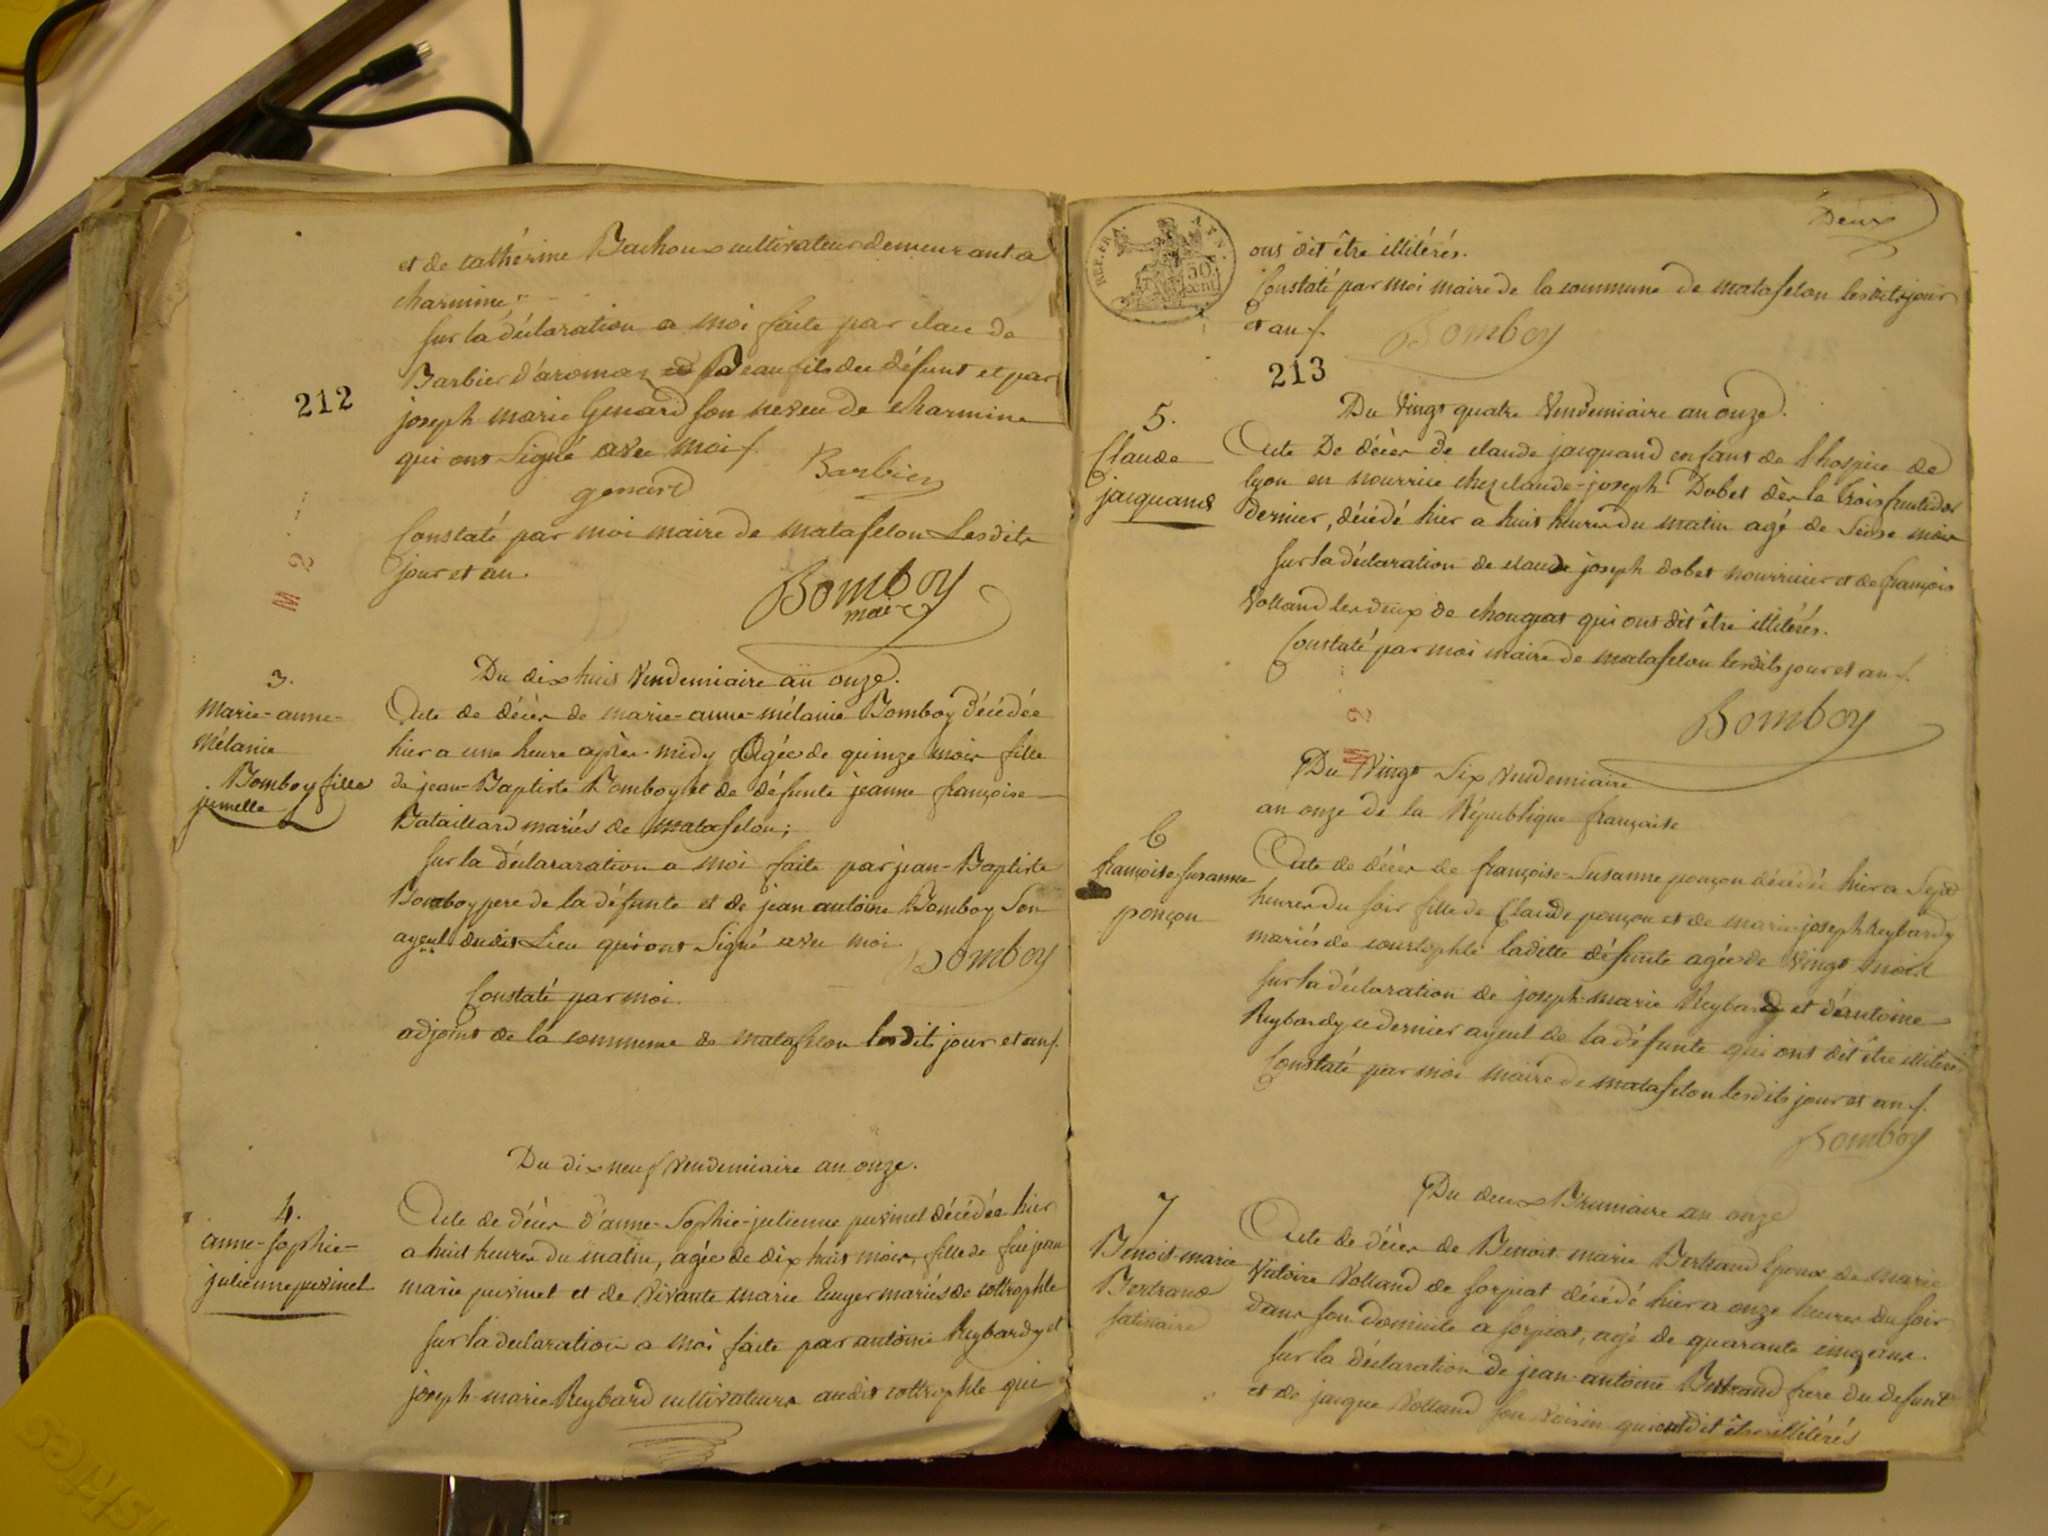 et de cathérine Bachoux cultivateur demeurant a
charmine.
sur la déclaration a moi faite par clau de
Barbier d'aromaz Beaufils du défunt et par
212
joseph marie Genard son neveu de charmine
qui ont Signé avec moi
Barbier
genard
Constaté par moi maire de matafelon Lesdits
jour et an.
Bomboy
maire
M 2
Du dix huit Vendemiaire an onze.
3.
Marie-anne-
mélanie
Bomboy fille
jumelle
Acte de décès de marie-anne-mélanie Bomboy décédée
hier a une heure après-midy Agée de quinze mois fille
de jean-Baptiste Bomboy et de défunte jeanne françoise
Bataillard mariés de matafelon;
sur la déclararation a moi faite par jean-Baptiste
Bomboy pere de la défunte et de jean antoine Bomboy Son
ayeul dudit Lieu qui ont Signé avec moi
Bomboy
Constaté par moi
adjoint de la commune de matafelon lesdits jour et an
Du dix neuf Vendemiaire an onze.
4.
anne-sophie-
julienne puvinel
Acte de décès d'anne-Sophie-julienne puvinel décédée hier
a huit heures du matin, agée de dix huit mois, fille de feu jean
marie puvinel et de Vivante marie Euyer mariés de cottrophle
sur la declaration a moi faite par antoine Reybardy et
joseph-marie Reybard cultivateurs audit cottrophle qui
Deux
REP. FRA.
50
cent
ont dit être illitérés.
Constaté par moi maire de la commune de matafelon lesdits jour
et an
Bomboy
213
Du Vingt quatre Vendemiaire an onze.
5.
Claude
jacquand
Acte De décès de claude jacquand enfant de l'hospice de
lyon en nourrice chez claude-joseph Dobet dès le trois fructidor
dernier, décédé hier a huit heures du matin agé de Seise mois
sur la déclaration de claude joseph dobet nourricier et de françois
Volland les deux de chougeat qui ont dit être illitérés.
Constaté par moi maire de matafelon lesdits jour et an
Bomboy
M 2
Du Vingt Six Vendemiaire
an onze de la République française
6
françoise-susanne
ponçon
Acte de décès de françoise-Susanne ponçon décédée hier a Sept
heures du soir fille de Claude ponçon et de marie-joseph Reybardy
mariés de courtophle laditte défunte agée de Vingt mois
sur la déclaration de joseph-marie Reybard et d'antoine
Reybardy ce dernier ayeul de la défunte qui ont dit être illitérés
Constaté par moi maire de matafelon lesdits jour et an
Bomboy
Du deux Brumaire an onze
7
Benoit-marie
Bertrand
Acte de décès de Benoit marie Bertrand Epoux de marie
Victoire Volland de sorpiat décédé hier a onze heures du soir
dans son domicile a sorpiat, agé de quarante cinq ans.
sur la déclaration de jean-antoine Bertrand frere du defunt
et de jacque Volland son Voisin qui ont dit être illitérés